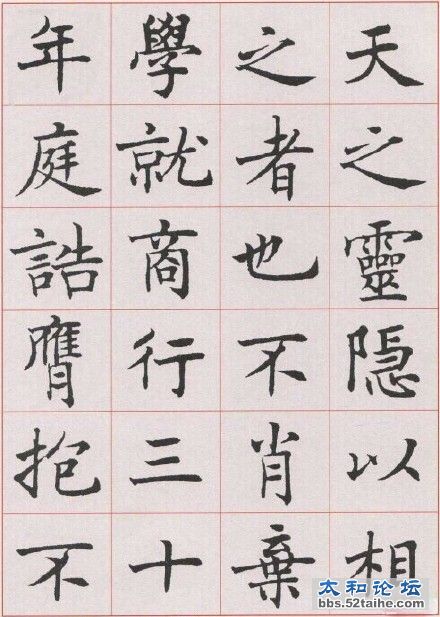 天之靈隠以相
之者也不肖棄
學就商行三十
年庭誥膺抱不
太和论坛
bbs.52taihe.com